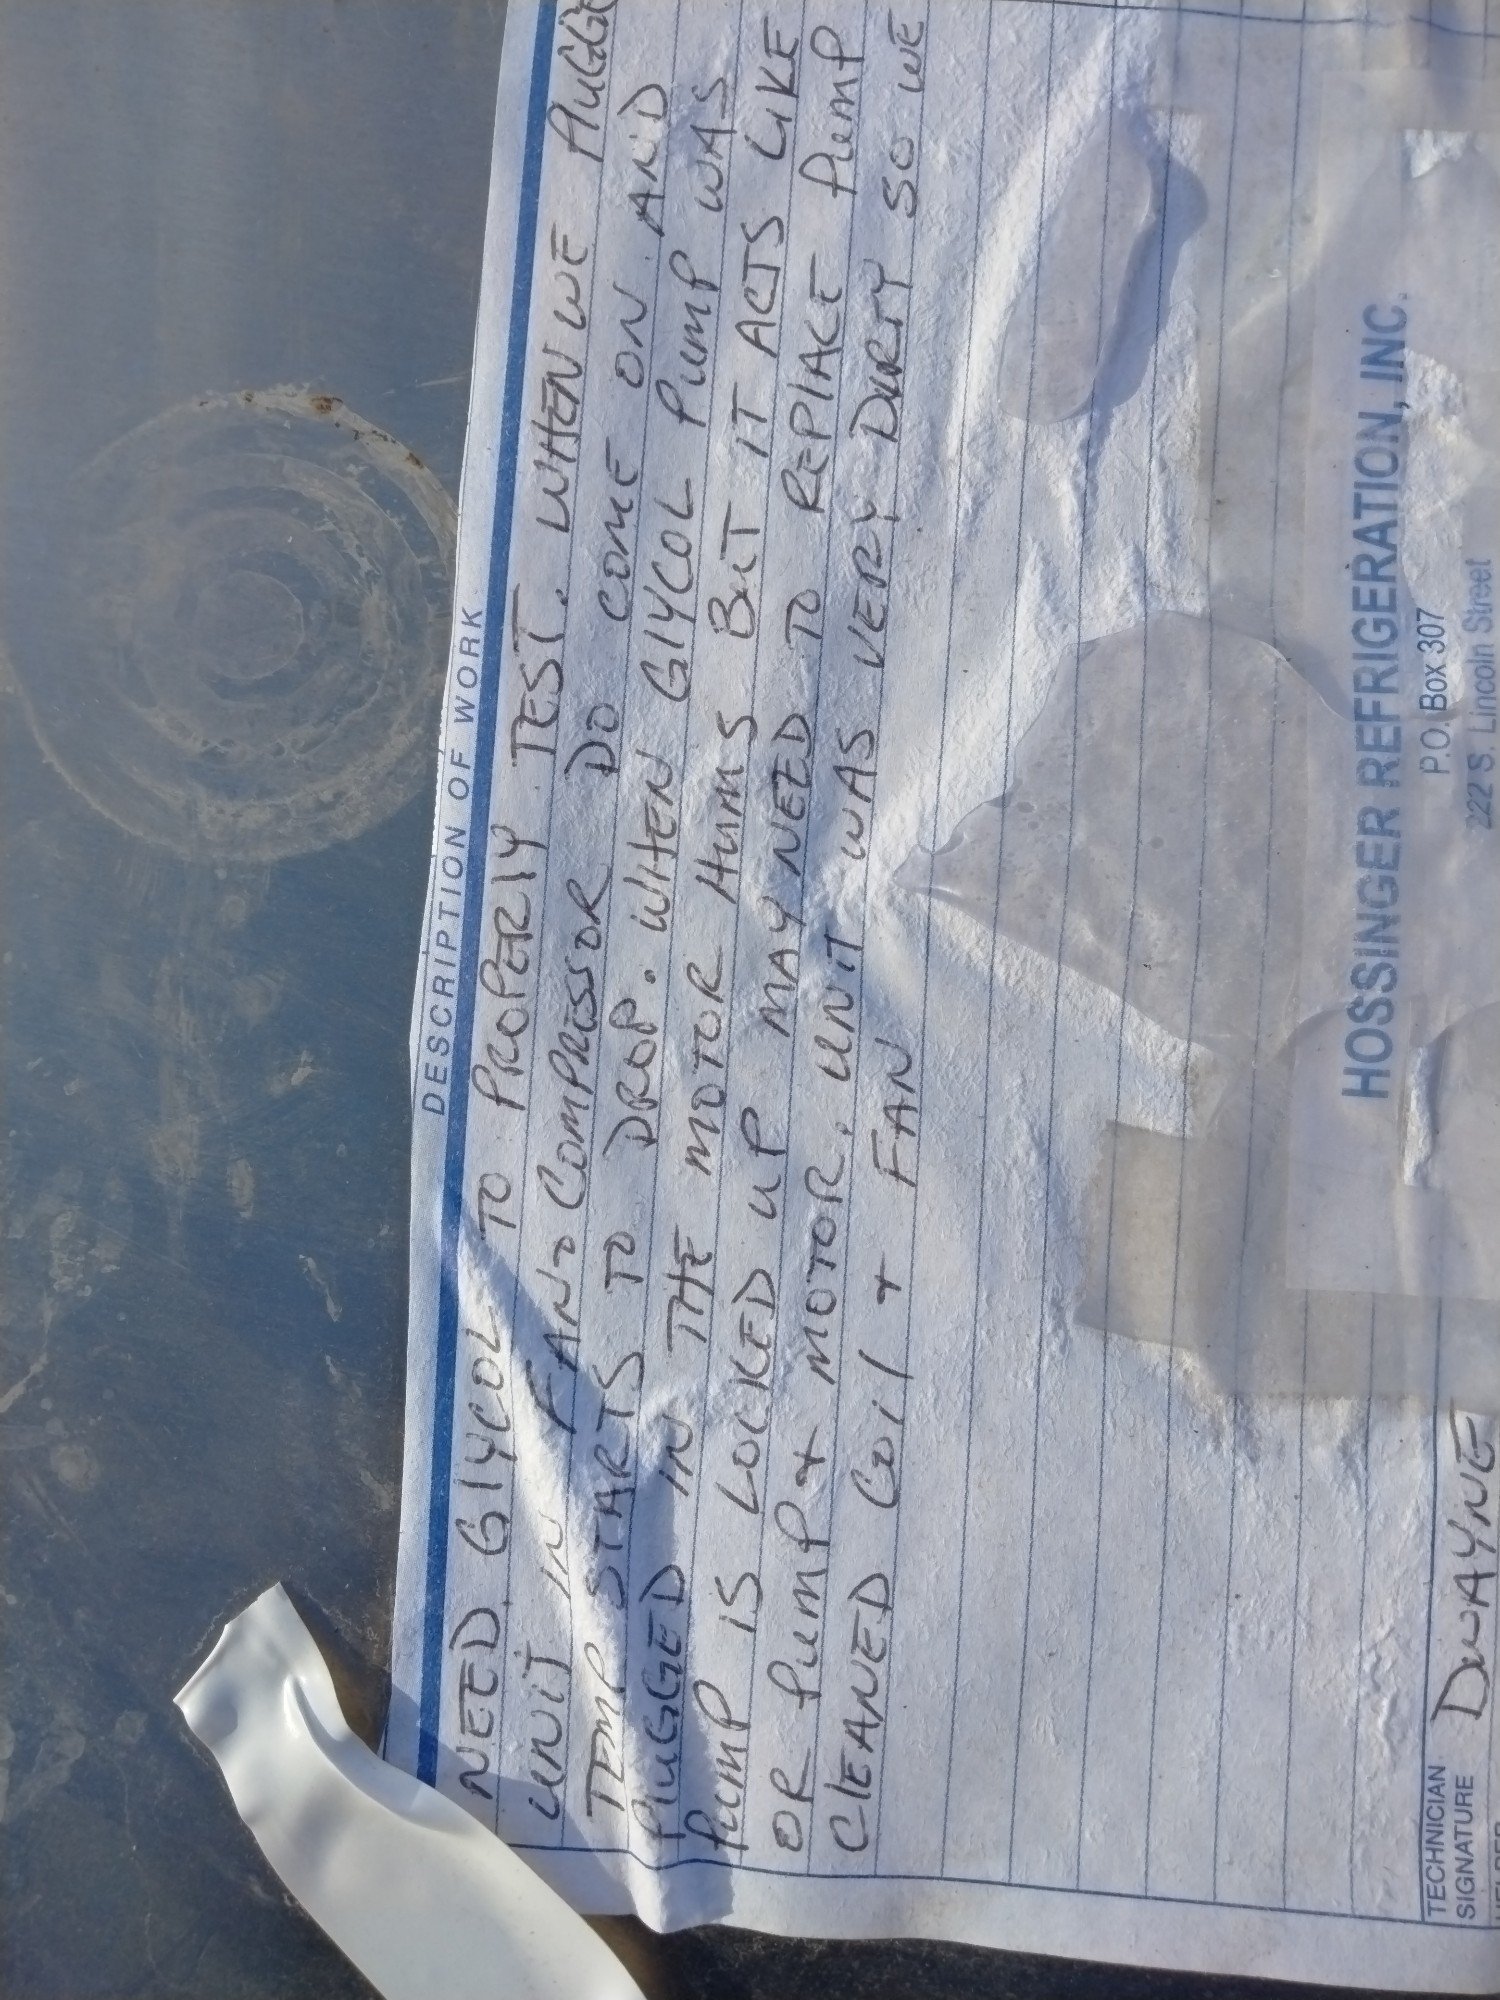 DESCRIPTION OF WORK
NEED GLYCOL TO PROPERLY TEST. WHEN WE PLUGGED
UNIT IN FAN & COMPRESSOR DO COME ON AND
TEMP STARTS TO DROP. WHEN GLYCOL PUMP WAS
PLUGGED IN THE MOTOR HUMS BUT IT ACTS LIKE
PUMP IS LOCKED UP MAY NEED TO REPLACE PUMP
OR PUMP + MOTOR. UNIT WAS VERY DIRTY SO WE
CLEANED COIL + FAN
HOSSINGER REFRIGERATION, INC.
P.O. Box 307
222 S. Lincoln Street
TECHNICIAN
SIGNATURE DWAYNE
HELPER